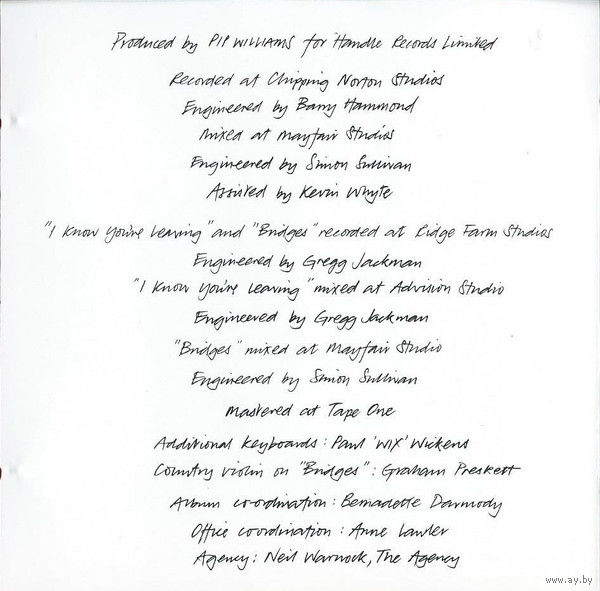 Produced by PIP WILLIAMS for Handle Records Limited
Recorded at Chipping Norton Studios
Engineered by Barry Hammond
Mixed at Mayfair Studios
Engineered by Simon Sullivan
Assisted by Kevin Whyte
"I Know You're Leaving" and "Bridges" recorded at Ridge Farm Studios
Engineered by Gregg Jackman
"I Know You're Leaving" mixed at Advision Studio
Engineered by Gregg Jackman
"Bridges" mixed at Mayfair Studio
Engineered by Simon Sullivan
Mastered at Tape One
Additional Keyboards: Paul 'WIX' Wickens
Country violin on "Bridges": Graham Preskett
Album co-ordination: Bernadette Darmody
Office co-ordination: Anne Lawler
Agency: Neil Warnock, The Agency
www.ay.by